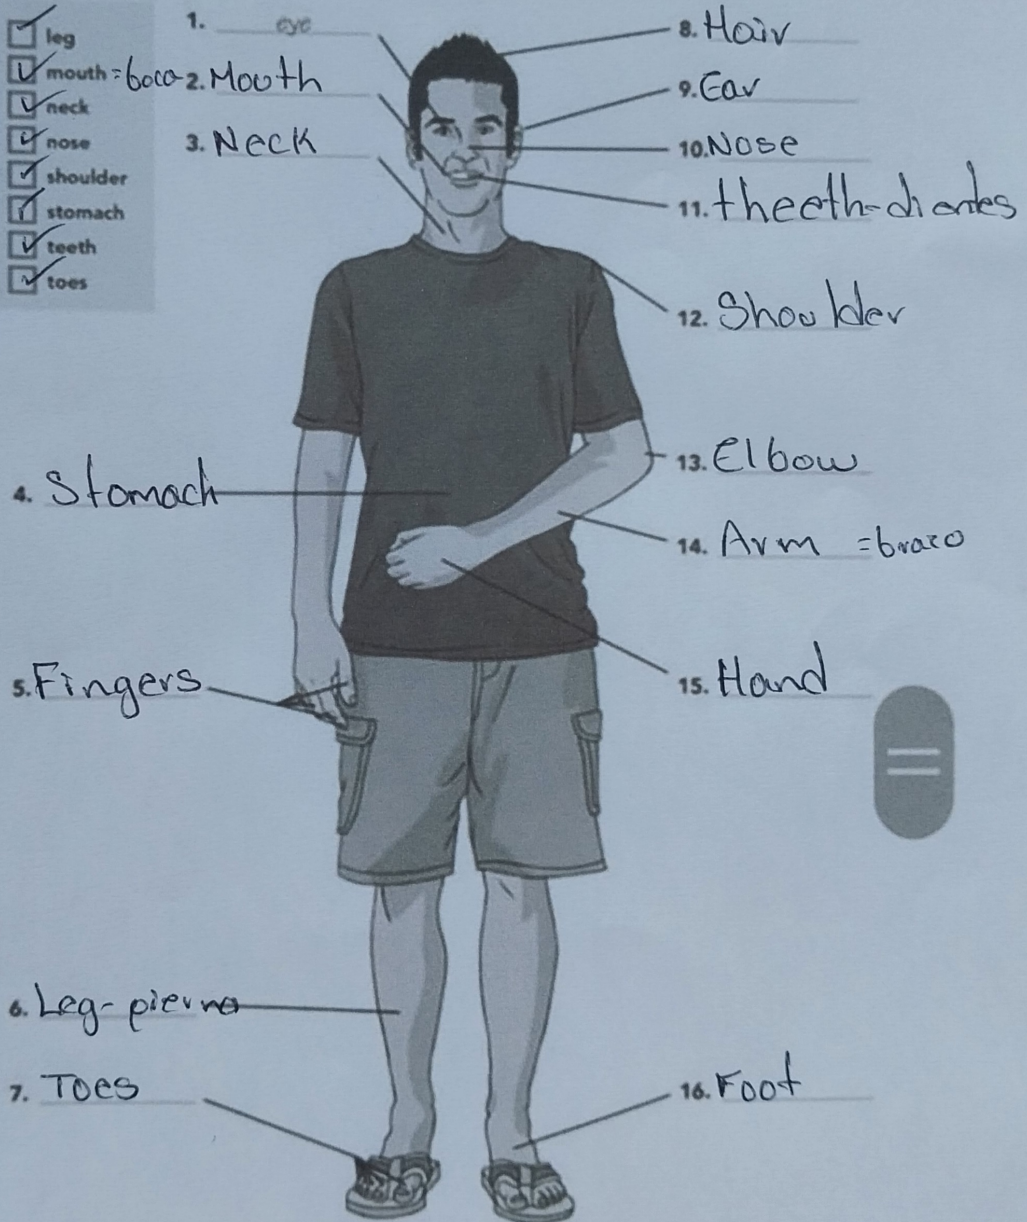 leg
mouth = boca
neck
nose
shoulder
stomach
teeth
toes
1. eye
2. Mouth
3. Neck
4. Stomach
5. Fingers
6. Leg - pierna
7. Toes
8. Hair
9. Ear
10. Nose
11. theeth - dientes
12. Shoulder
13. Elbow
14. Arm = brazo
15. Hand
16. Foot